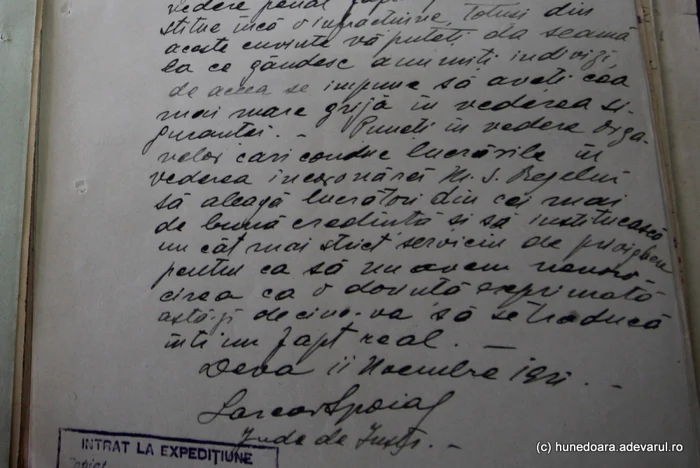 vedere penal
stitue încă o infracțiune, totuși din
aceste cuvinte vă puteți da seamă
la ce gândesc anumiți indivizi,
de aceea se impune să aveți cea
mai mare grijă în vederea si-
guranței. - Puneți în vedere orga-
nelor cari conduc lucrările în
vederea încoronărei M. S. Regelui
să aleagă lucrători din cei mai
de bună credință și să instituească
un cât mai strict serviciu de priveghere
pentru ca să nu avem nenoro-
cirea ca o dorință exprimată
astă-zi de cine-va să se traducă
înti un fapt real. -
Deva 11 Noembre 1921. -
Jude de
INTRAT LA EXPEDIȚIUNE
(c) hunedoara.adevarul.ro